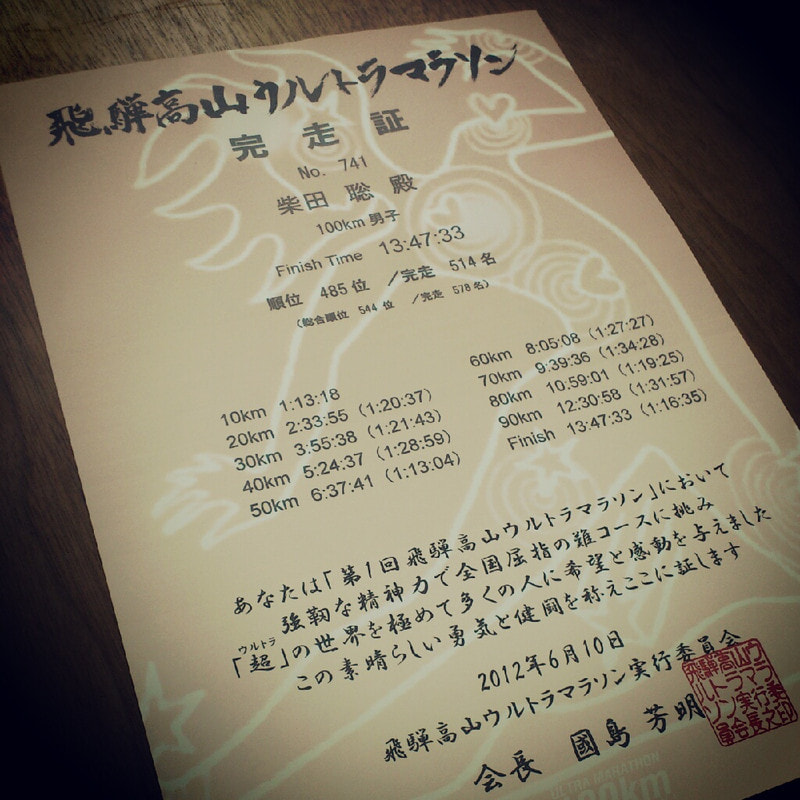 飛騨高山ウルトラマラソン
完走証
No. 741
柴田 聡 殿
100km 男子
Finish Time 13:47:33
順位 485位 /完走 514名
(総合順位 544位 /完走 578名)
10km 1:13:18
20km 2:33:55 (1:20:37)
30km 3:55:38 (1:21:43)
40km 5:24:37 (1:28:59)
50km 6:37:41 (1:13:04)
60km 8:05:08 (1:27:27)
70km 9:39:36 (1:34:28)
80km 10:59:01 (1:19:25)
90km 12:30:58 (1:31:57)
Finish 13:47:33 (1:16:35)
あなたは「第1回飛騨高山ウルトラマラソン」において
強靭な精神力で全国屈指の難コースに挑み
ウルトラ
「超」の世界を極めて多くの人に希望と感動を与えました
この素晴らしい勇気と健闘を称えここに証します
2012年6月10日
飛騨高山ウルトラマラソン実行委員会
会長 國島 芳明
飛騨高山ウルトラマラソン実行委員会長之印
ULTRA MARATHON
100km